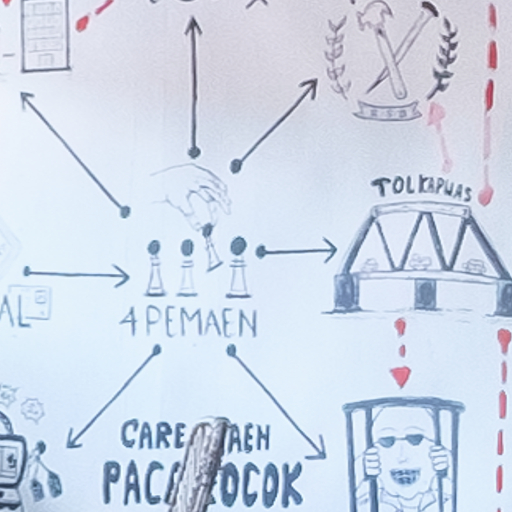 TOLKAPUAS
AL
4 PEMAEN
CARE AEH
PAC OCOK